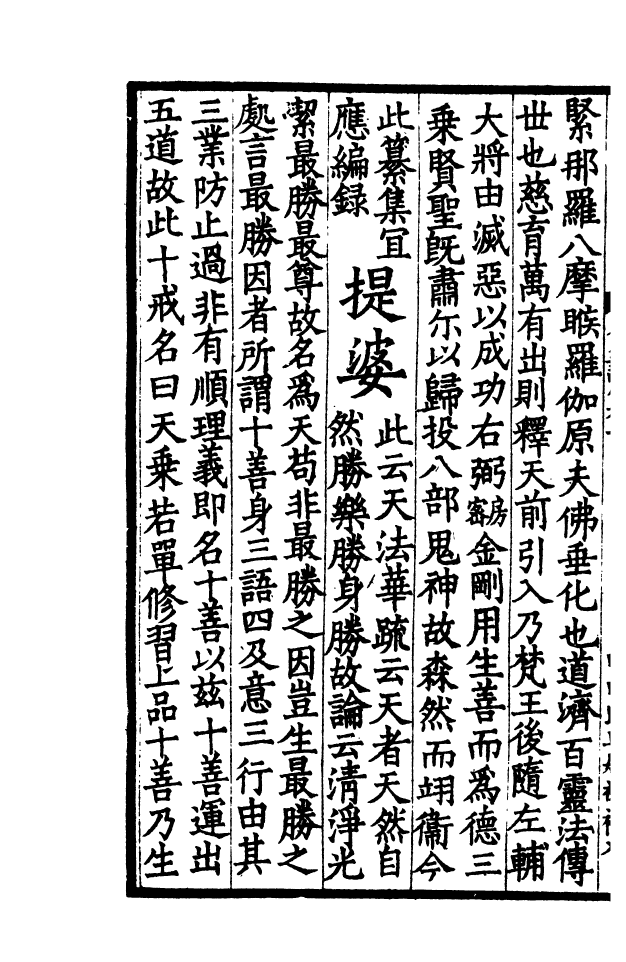 緊那羅八摩睺羅伽原夫佛垂化也道濟百靈法傳
丗也慈育萬有出則釋天前引入乃梵王後隨左輔
大將由滅惡以成功右弼房密金剛用生善而爲德三
乗賢聖旣肅尓以歸投八部鬼神故森然而翊衞今
此纂集宜
應編録
提婆
此云天法華䟽云天者天然自
然勝樂勝身勝故論云清淨光
潔最勝最尊故名爲天苟非最勝之因豈生最勝之
處言最勝因者所謂十善身三語四及意三行由其
三業防止過非有順理義即名十善以兹十善運出
五道故此十戒名曰天乗若單修習上品十善乃生